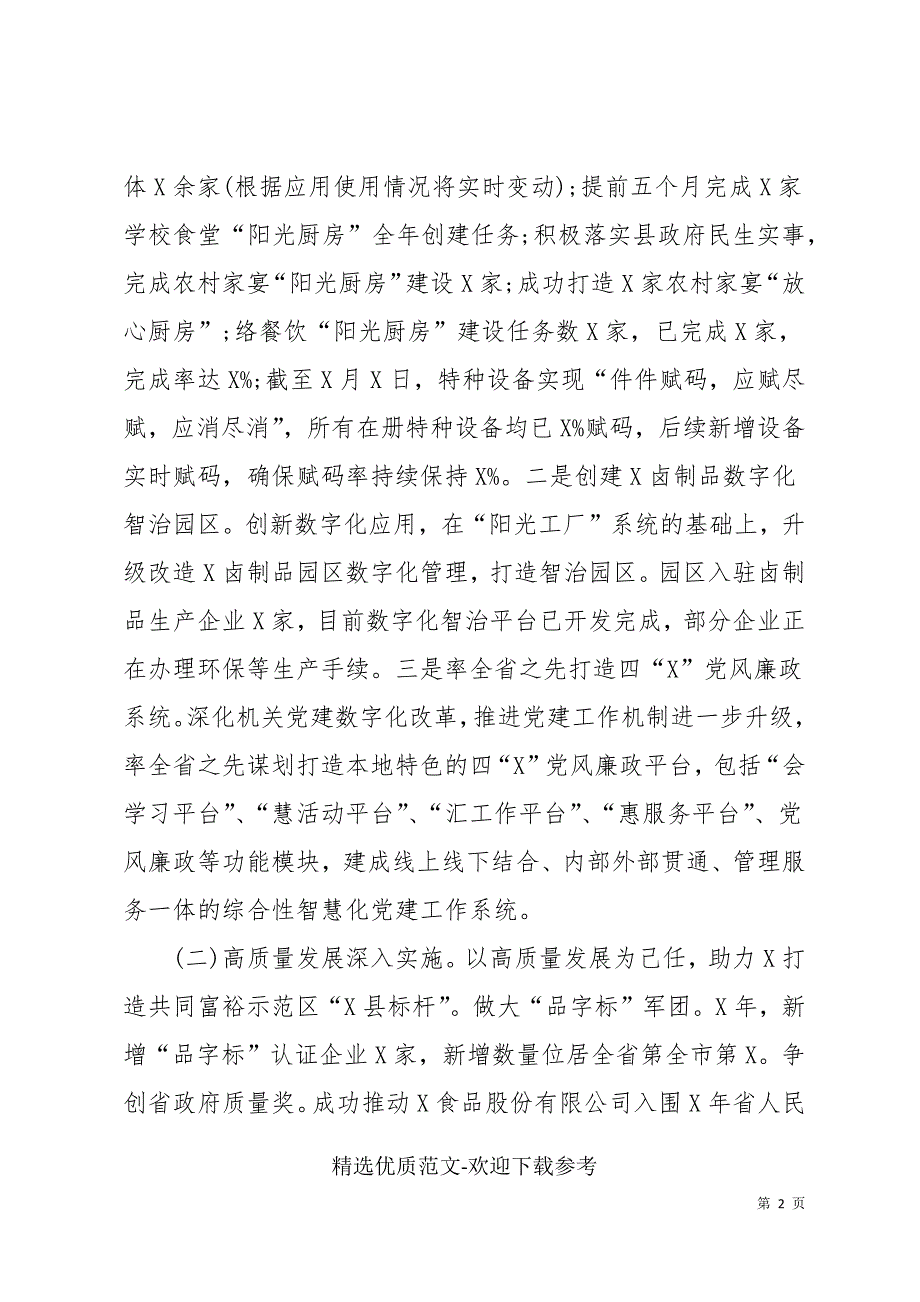 体 X 余家(根据应用使用情况将实时变动);提前五个月完成 X 家
学校食堂“阳光厨房”全年创建任务;积极落实县政府民生实事,
完成农村家宴“阳光厨房”建设 X 家;成功打造 X 家农村家宴“放
心厨房”;络餐饮“阳光厨房”建设任务数 X 家，已完成 X 家，
完成率达 X%;截至 X 月 X 日，特种设备实现“件件赋码，应赋尽
赋，应消尽消”，所有在册特种设备均已 X%赋码，后续新增设备
实时赋码，确保赋码率持续保持 X%。二是创建 X 卤制品数字化
智治园区。创新数字化应用，在“阳光工厂”系统的基础上，升
级改造 X 卤制品园区数字化管理，打造智治园区。园区入驻卤制
品生产企业 X 家，目前数字化智治平台已开发完成，部分企业正
在办理环保等生产手续。三是率全省之先打造四“X”党风廉政
系统。深化机关党建数字化改革，推进党建工作机制进一步升级，
率全省之先谋划打造本地特色的四“X”党风廉政平台，包括“会
学习平台”、“慧活动平台”、“汇工作平台”、“惠服务平台”、党
风廉政等功能模块，建成线上线下结合、内部外部贯通、管理服
务一体的综合性智慧化党建工作系统。
(二)高质量发展深入实施。以高质量发展为己任，助力 X 打
造共同富裕示范区“X 县标杆”。做大“品字标”军团。X 年，新
增“品字标”认证企业 X 家，新增数量位居全省第全市第 X。争
创省政府质量奖。成功推动 X 食品股份有限公司入围 X 年省人民
精选优质范文-欢迎下载参考
第 2 页